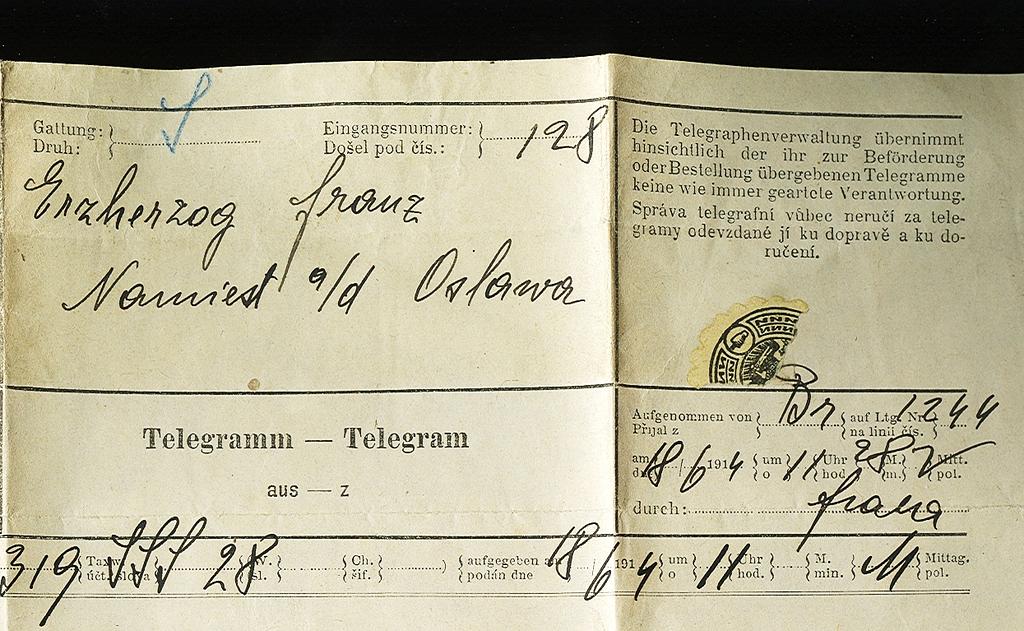 Gattung:} S Eingangsnummer:} 128
Druh: Došel pod čís.:
Erzherzog franz
Namiest a/d Oslawa
Die Telegraphenverwaltung übernimmt
hinsichtlich der ihr zur Beförderung
oder Bestellung übergebenen Telegramme
keine wie immer geartete Verantwortung.
Správa telegrafní vůbec neručí za tele-
gramy odevzdané jí ku dopravě a ku do-
ručení.
Telegramm — Telegram
aus — z
Aufgenommen von} Br auf Ltg. Nr.} 1244
Přijal z na linii čís.
am 18/6 1914 um 11 Uhr 28 M. Mitt.
dne o hod. m. pol.
durch:
319 SSS 28 Taxw. W. Ch. aufgegeben am 18/6 1914 um 11 Uhr M. M Mittag.
účt. slova sl. šif. podán dne o hod. min. pol.